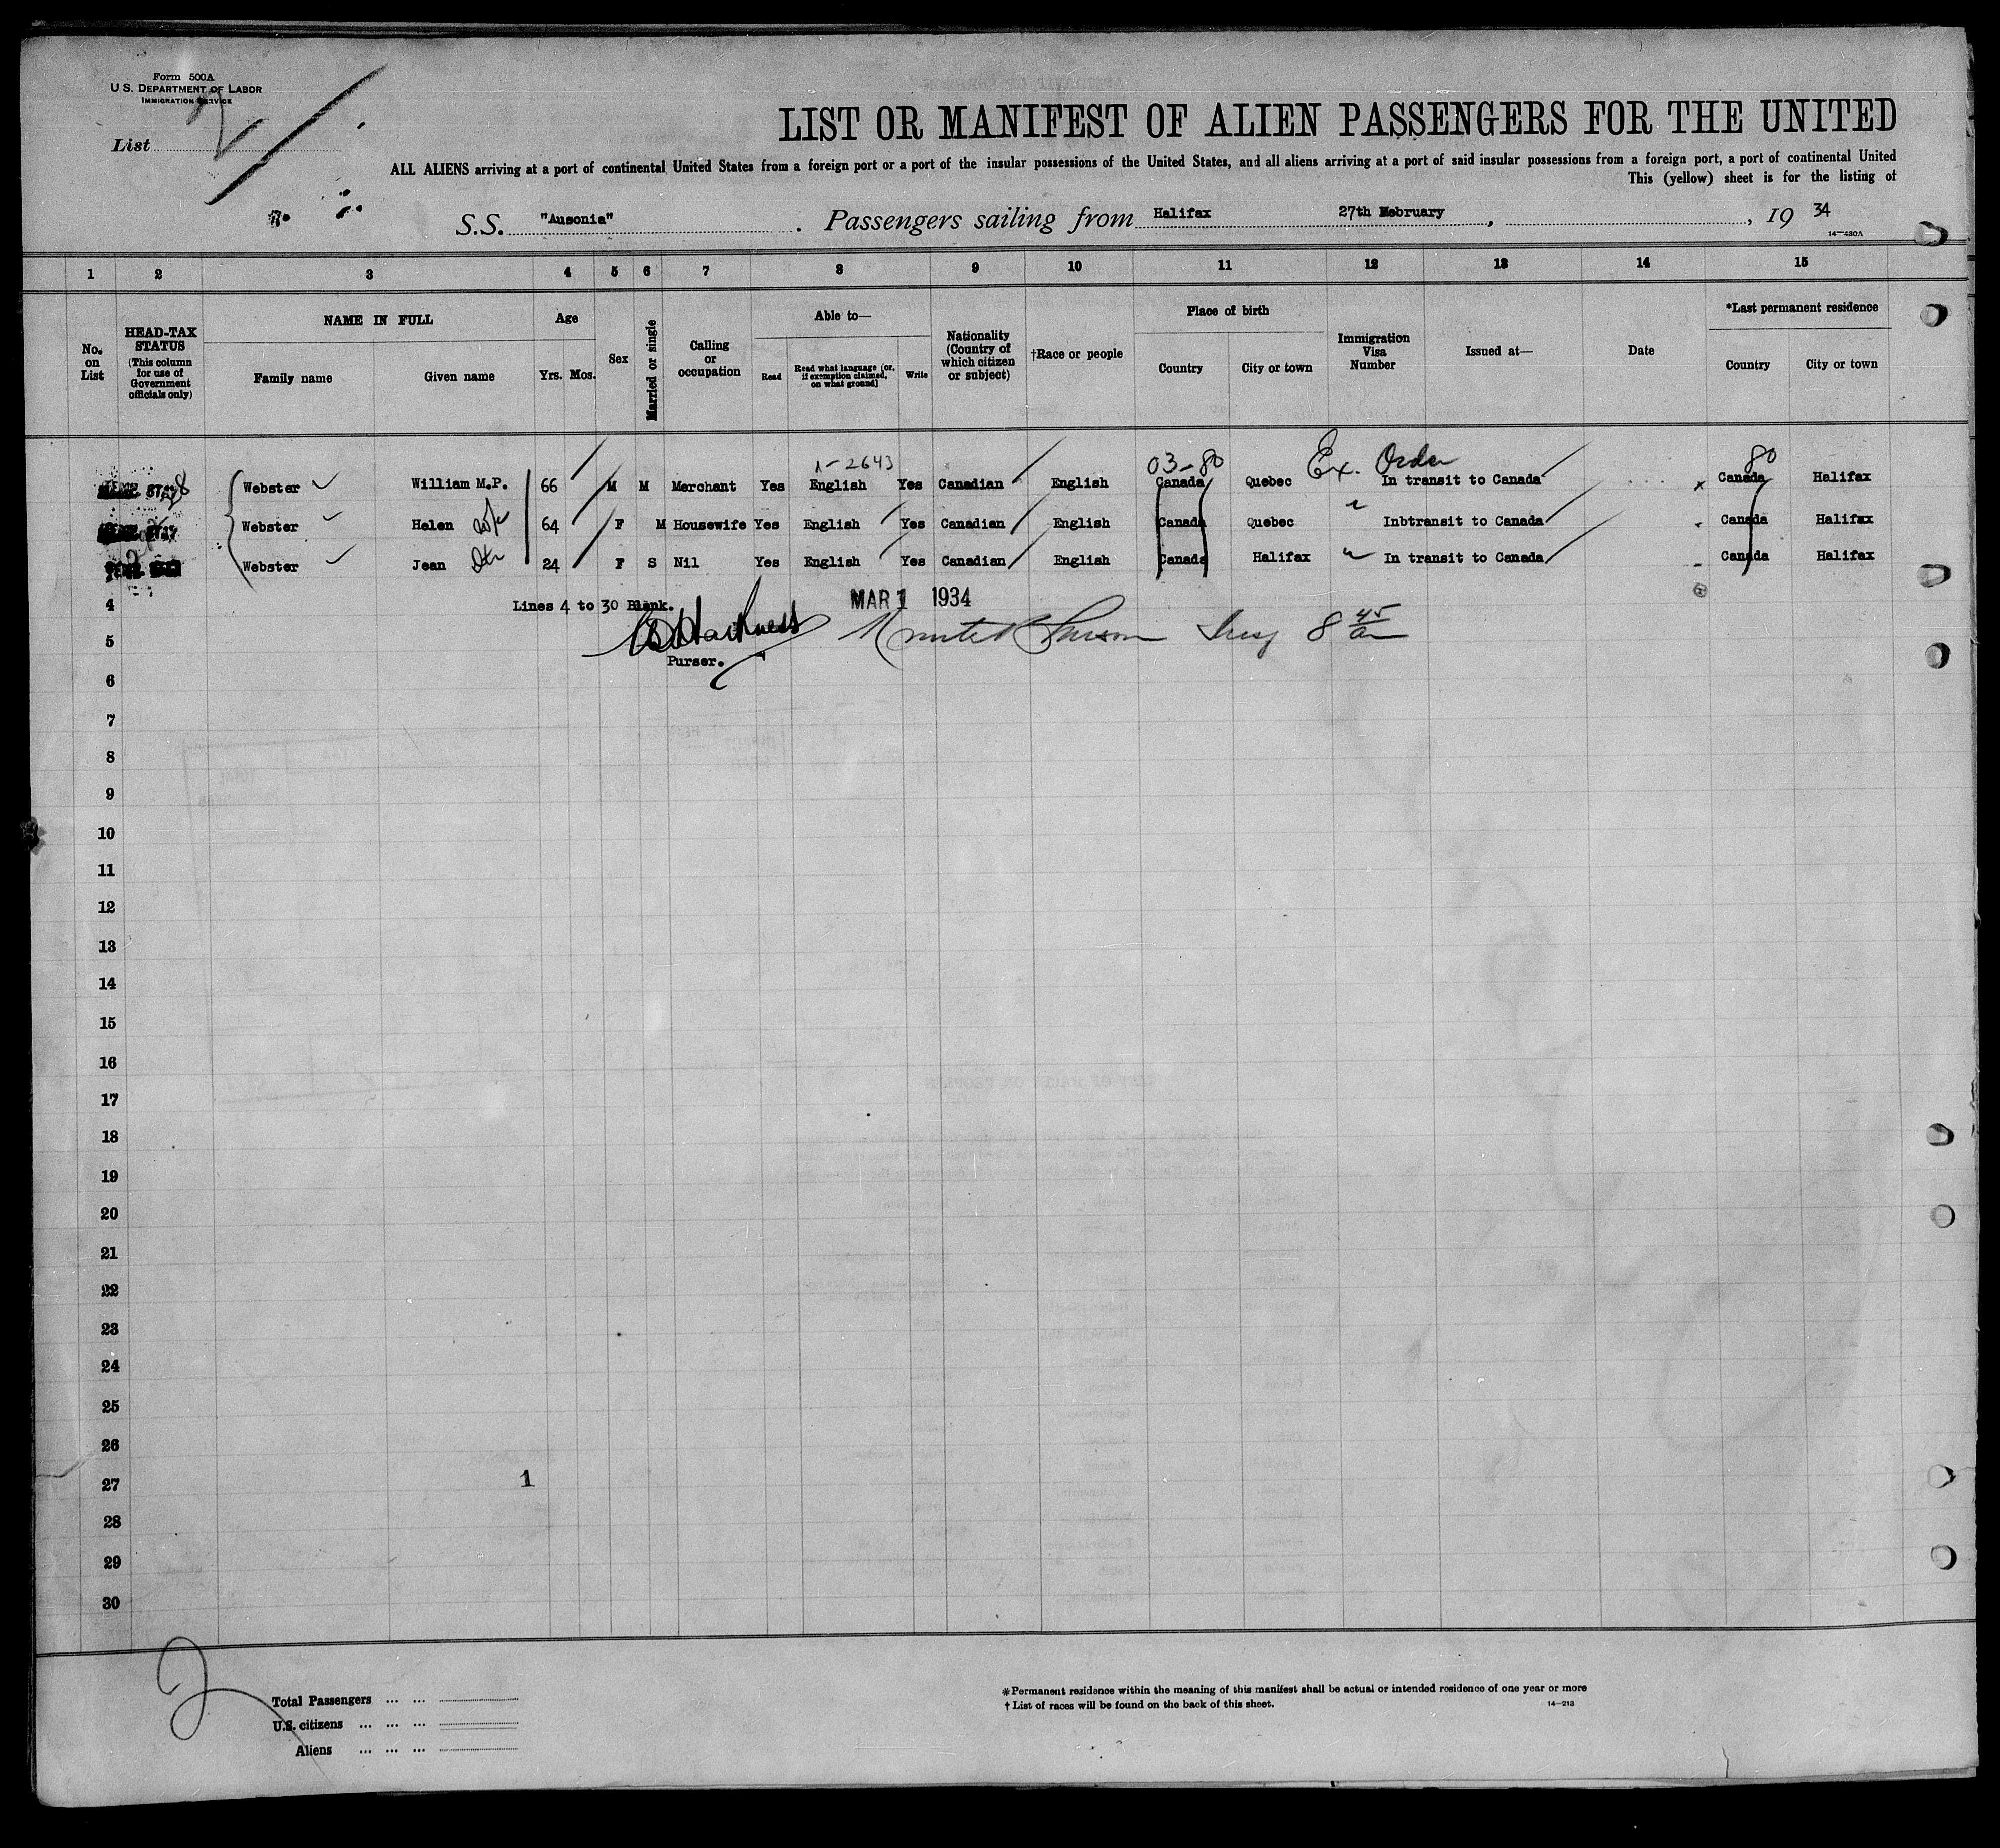 Form 500A
U.S. DEPARTMENT OF LABOR
IMMIGRATION SERVICE
List 2
LIST OR MANIFEST OF ALIEN PASSENGERS FOR THE UNITED
ALL ALIENS arriving at a port of continental United States from a foreign port or a port of the insular possessions of the United States, and all aliens arriving at a port of said insular possessions from a foreign port, a port of continental United
This (yellow) sheet is for the listing of
S.S. "Ausonia". Passengers sailing from Halifax 27th February, , 19 34
14-430A
1 2 3 4 5 6 7 8 9 10 11 12 13 14 15
No. on List
HEAD-TAX STATUS (This column for use of Government officials only)
NAME IN FULL
Family name Given name
Age
Yrs. Mos.
Sex
Married or single
Calling or occupation
Able to—
Read Read what language (or, if exemption claimed, on what ground) Write
Nationality (Country of which citizen or subject)
†Race or people
Place of birth
Country City or town
Immigration Visa Number
Issued at—
Date
*Last permanent residence
Country City or town
1-2643 03-80 Ex. Order 80
Webster William M.P. 66 M M Merchant Yes English Yes Canadian English Canada Quebec In transit to Canada Canada Halifax
Webster Helen wife 64 F M Housewife Yes English Yes Canadian English Canada Quebec " Inbtransit to Canada Canada Halifax
Webster Jean Dtr 24 F S Nil Yes English Yes Canadian English Canada Halifax " In transit to Canada Canada Halifax
4 Lines 4 to 30 Blank. MAR 1 1934
5 Harkness 8 45
Purser.
6
7
8
9
10
11
12
13
14
15
16
17
18
19
20
21
22
23
24
25
26
27 1
28
29
30
2
Total Passengers ... ...
U.S. citizens ... ... ...
Aliens ... ... ...
*Permanent residence within the meaning of this manifest shall be actual or intended residence of one year or more
† List of races will be found on the back of this sheet. 14-213